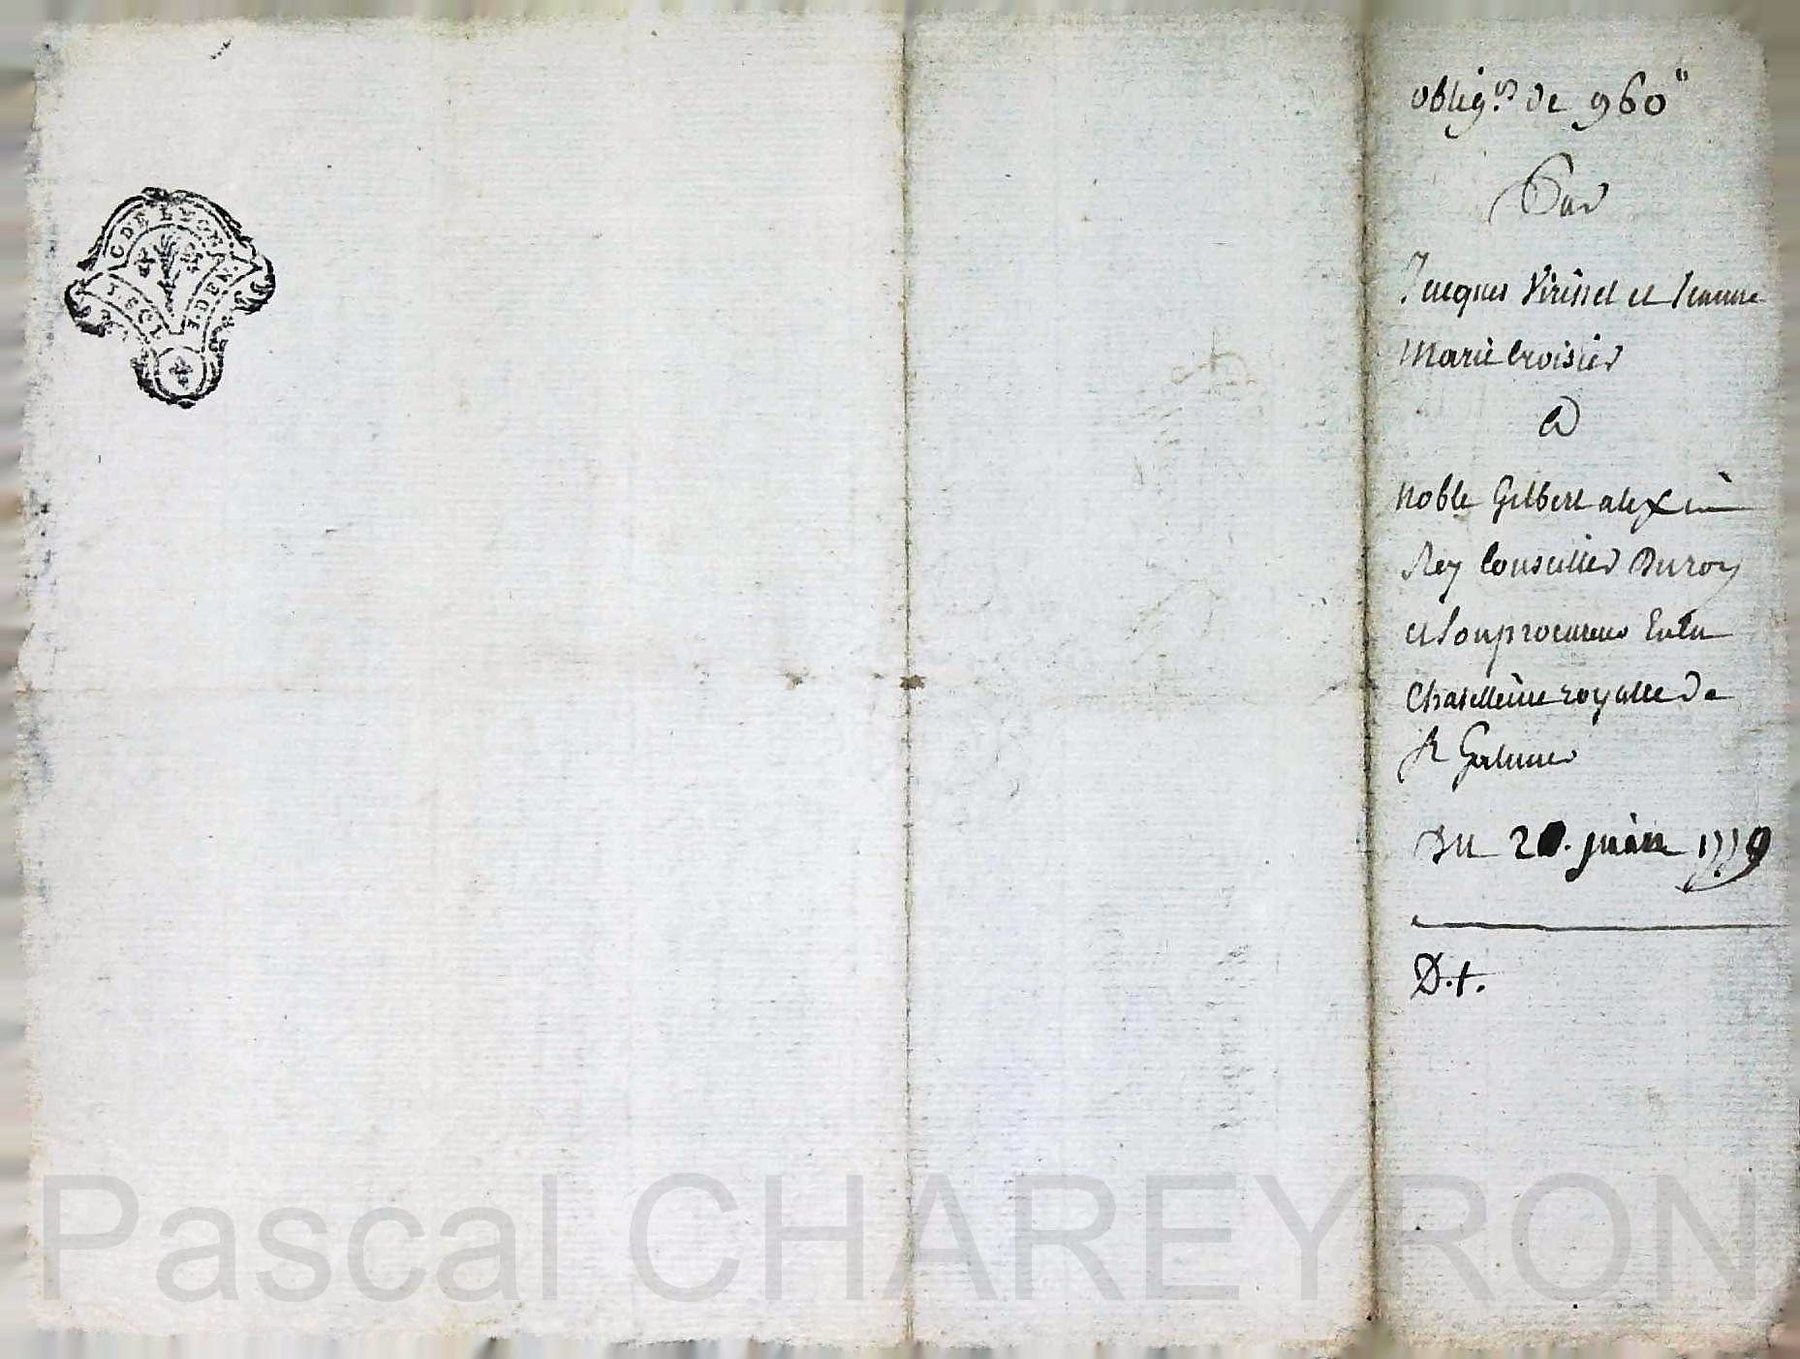 G. DE LYON
2. SOLS
8 DEN
oblig.on de 960"
Par
Jacques Virissel et Jeanne
Marie Croisier
A
Noble Gilbert alexis
Rey Conseiller Du roy
et Son procureur En la
Chatellenie royalle de
St Galmier
Du 20. juin 1779
D.t.
Pascal CHAREYRON